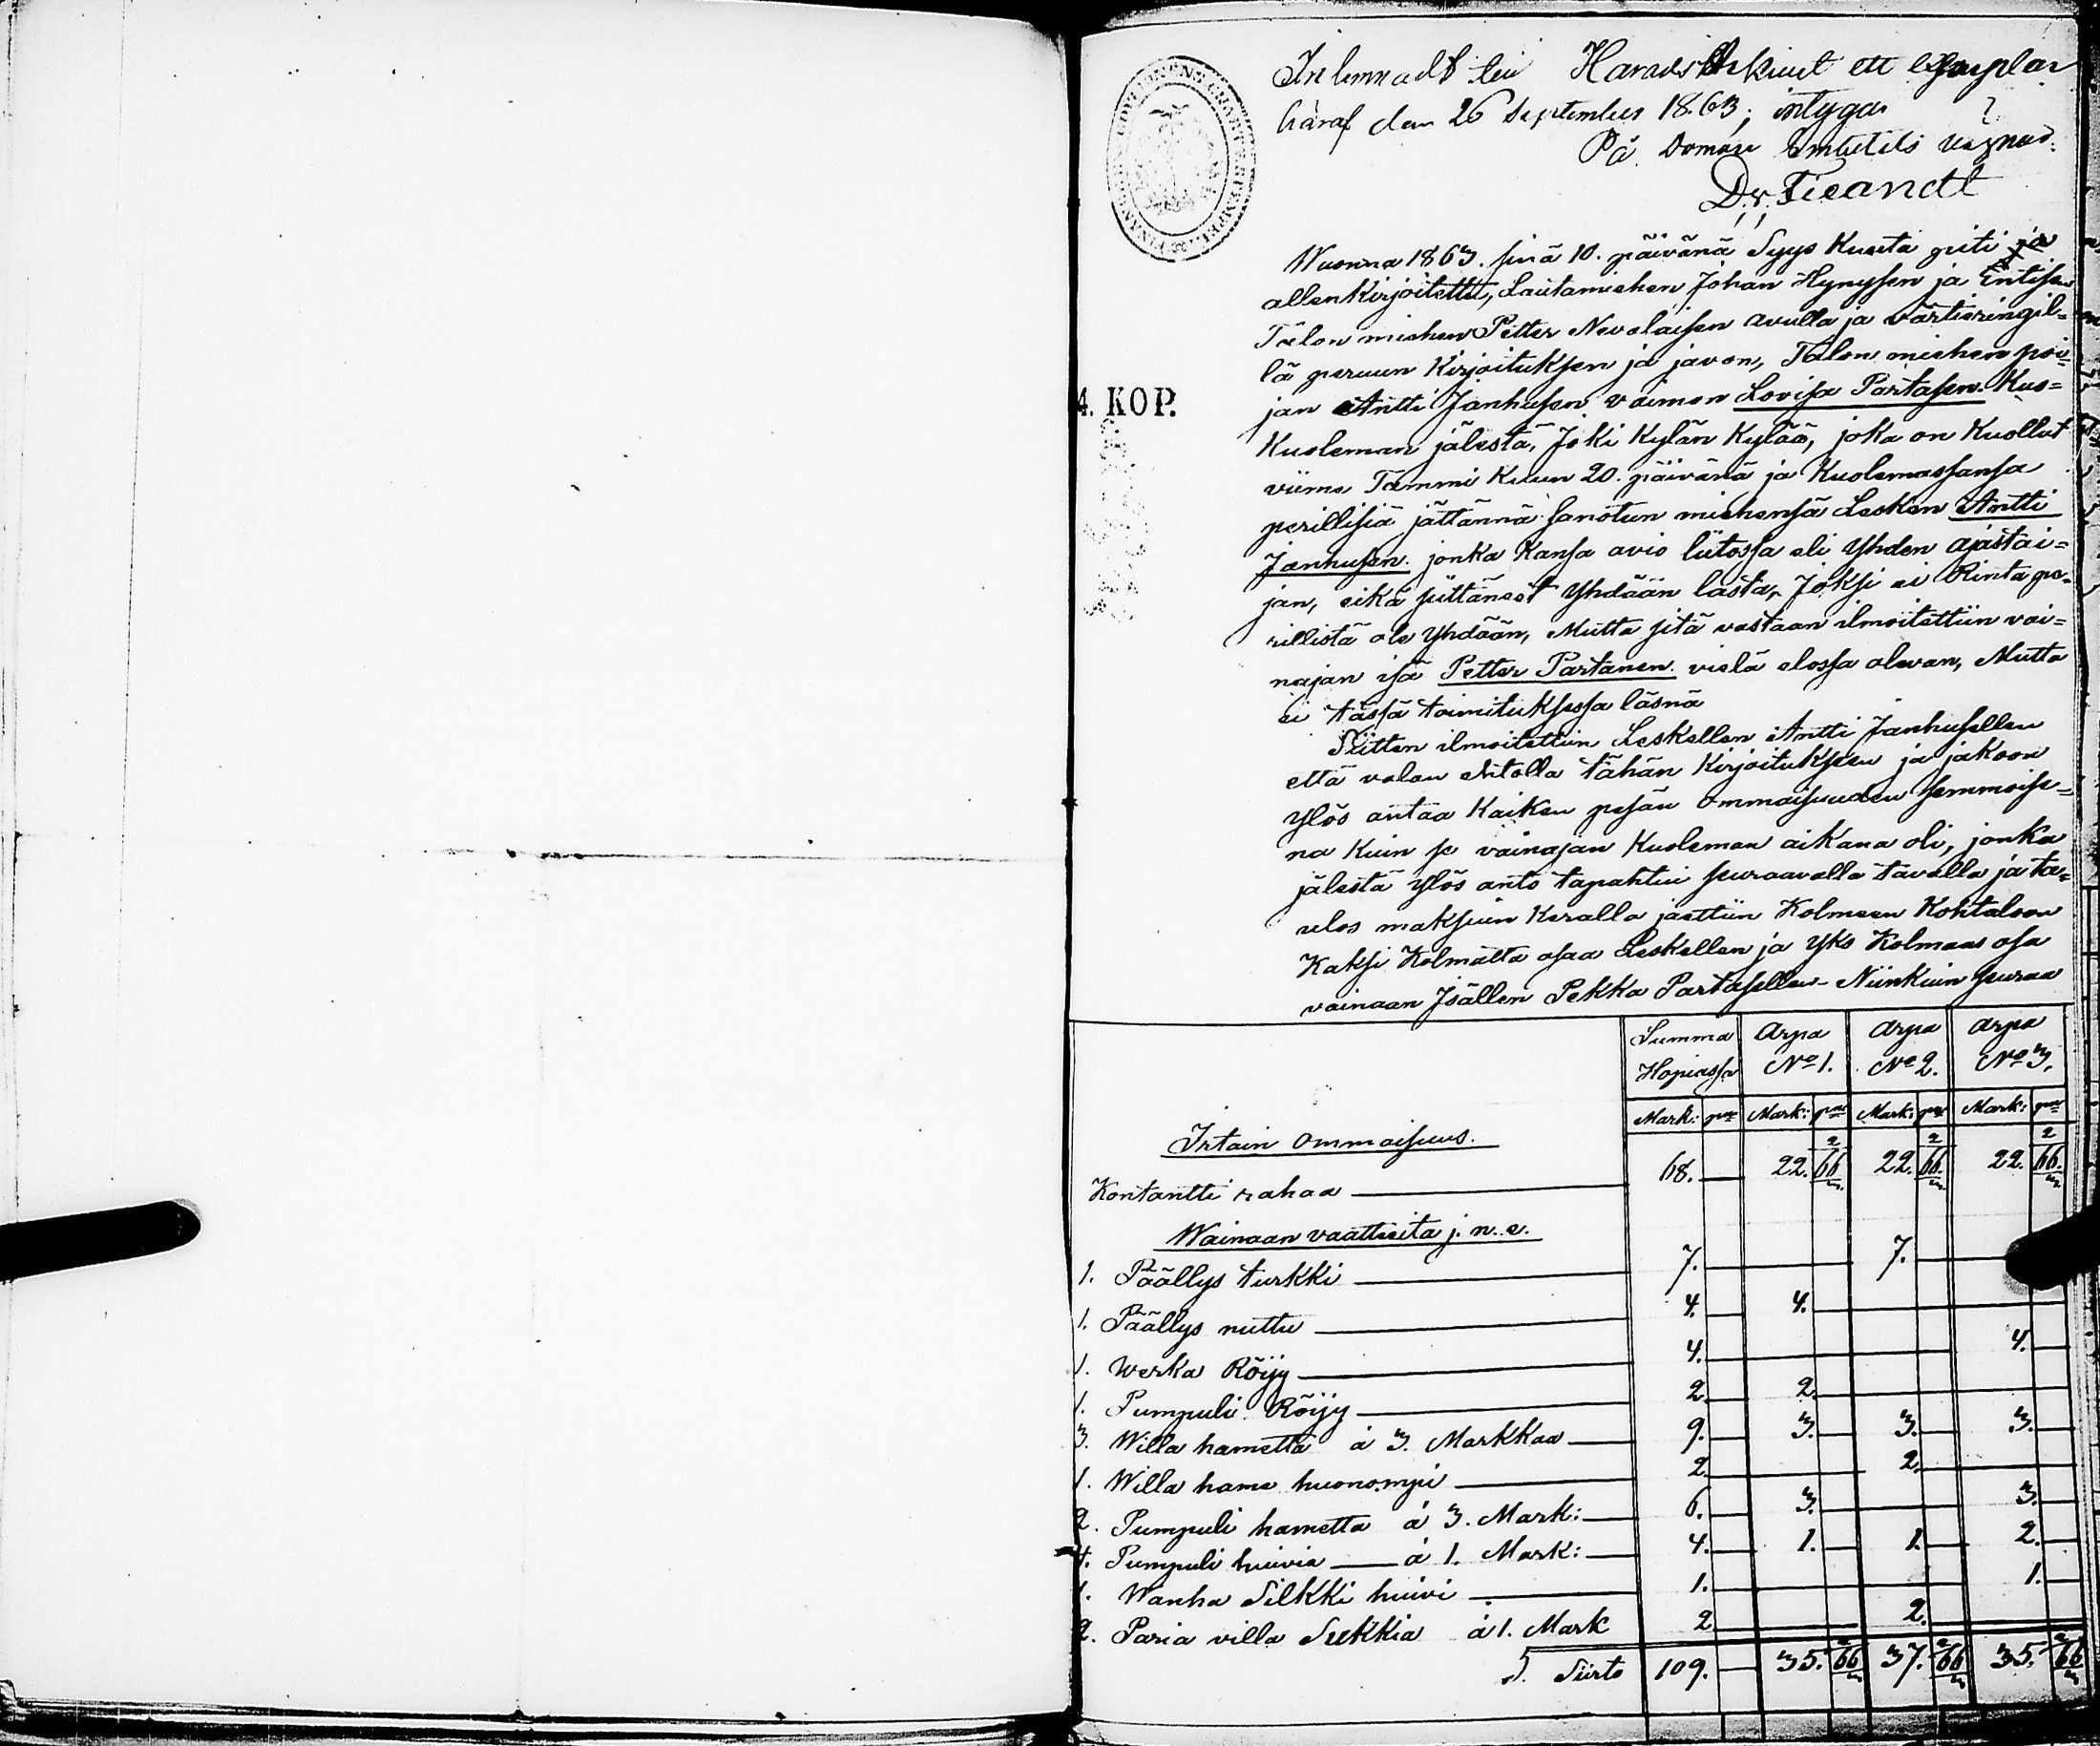 Inlemnadt till Häradsarkivet ett exemplar
häraf den 26 September 1863; intygar
På Domare Embetets vägnar:
Tieandt
4. KOP.
Wuonna 1863. sinä 10. päivänä Syys Kuuta piti ja
allenkirjoitettu, Lautamiehen Johan Hynysen ja Entisen
Talon miehen Petter Nevalaisen avulla ja värtieringil=
lä peruun Kirjoituksen ja javon, Talon miehen poi=
jan Antti Janhusen vaimon Lovisa Partasen. Kuo=
Kuoleman jälestä, Joki Kylän Kylää, joka on Kuollut
viime Tammi Kuun 20. päivänä ja Kuolemassansa
perillisiä jättännä sanotun miehensä Lesken Antti
Janhusen. jonka Kansa avio liitossa eli Yhden ajastai=
jan, eikä siittäneet Yhdään lasta, Joksi ei Rinta pe=
rillistä ole Yhdään, Mutta sitä vastaan ilmoitettiin vai=
najan isä Petter Partanen. vielä elossa olevan, Mutta
ei tässä toimituksessa läsnä
Sitten ilmoitettiin Leskellen Antti Janhusellen
että valan ehtolla tähän Kirjoituksen ja jakoon
Ylös antaa Kaiken pesän ommaisuuden semmoise=
na Kuin se vainajan Kuoleman aikana oli, jonka
jälestä Ylös anto tapahtui seuraavalla tavalla ja ta=
ulos maksuin Keralla jaettiin Kolmeen Kohtaloon
Kaksi Kolmatta osaa Leskellen ja Yks Kolmaas osa
vainaan Isällen Pekka Partasellen. Niinkuin seuraa
Summa Arpa Arpa Arpa
Hopiassa No 1. No 2. No 3.
Mark: pen Mark: pen Mark: pen Mark: pen
Irtain ommaisuus.
Kontantti rahaa — 68. — 22. 66 2/3 22. 66 2/3 22. 66 2/3
Wainaan vaatteita j. n. e.
1. Päällys turkki — 7. — 7. —
1. Päällys nuttu — 4. — 4. —
1. Werka Röijy — 4. — 4. —
1. Pumpuli Röijy — 2. 2. —
3. Willa hametta á 3. Markkaa — 9. — 3. — 3. — 3. —
1. Willa hame huonompi — 2. — 2. —
2. Pumpuli hametta á 3. Mark: — 6. — 3. — 3. —
4. Pumpuli huivia — á 1. Mark: — 4. — 1. — 1. — 2. —
1. Wanha Silkki huivi — 1. — 1. —
2. Paria villa Sukkia á 1. Mark 2 — 2. —
Siirto 109. — 35. 66 2/3 37. 66 2/3 35. 66 2/3